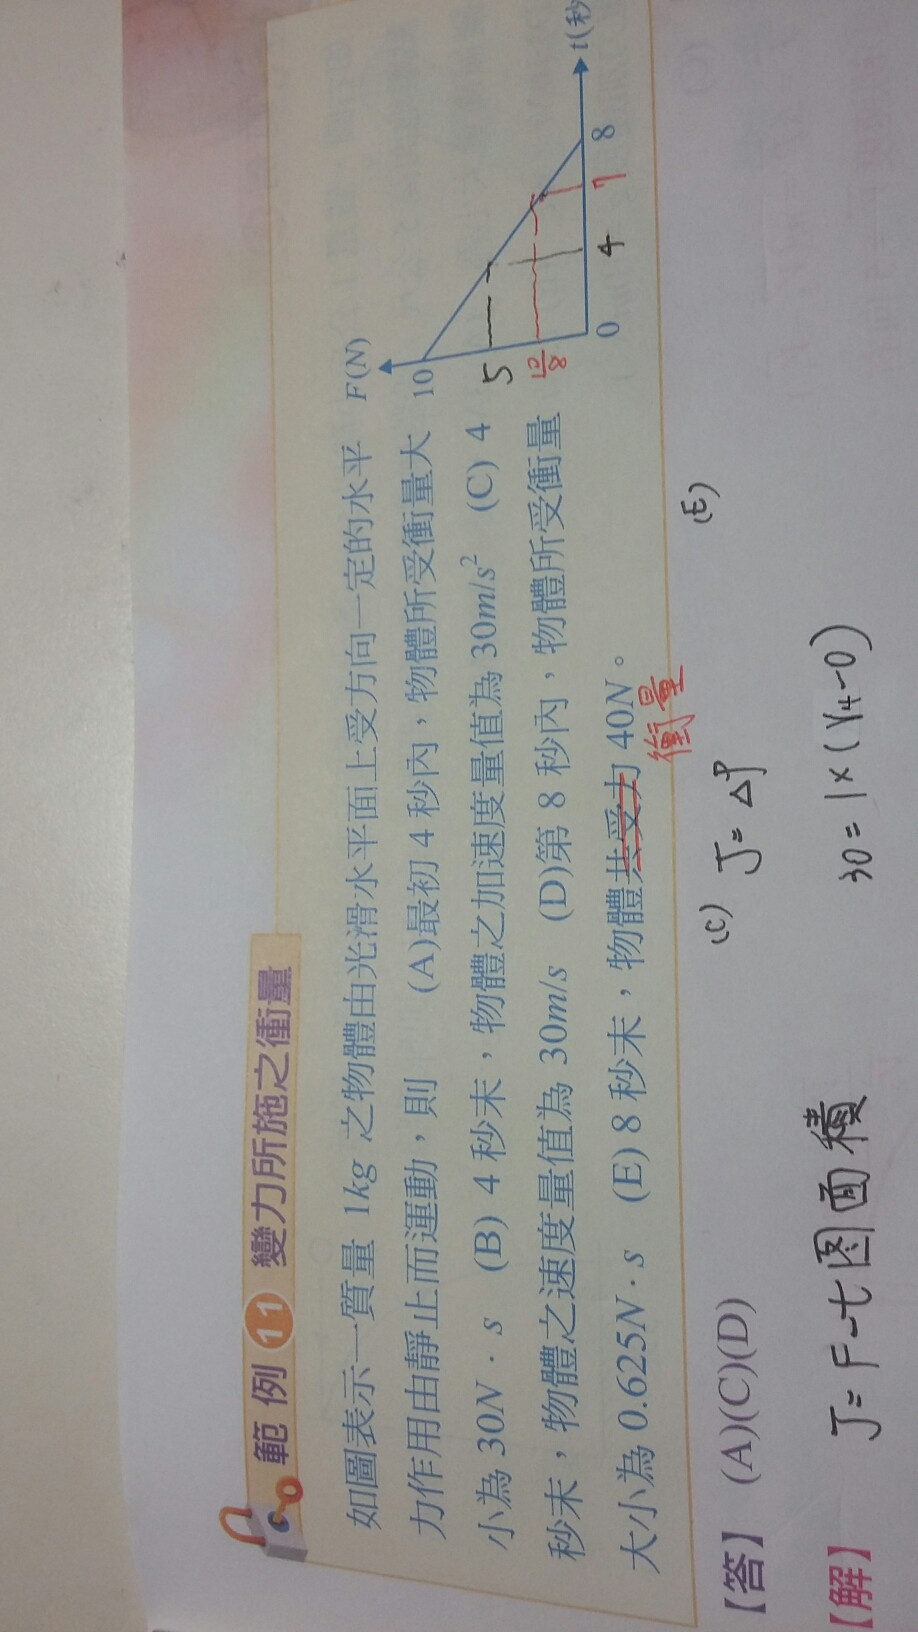 範例 11 變力所施之衝量
如圖表示一質量 1kg 之物體由光滑水平面上受方向一定的水平
力作用由靜止而運動，則 (A)最初 4 秒內，物體所受衝量大
小為 30N．s (B) 4 秒末，物體之加速度量值為 30m/s² (C) 4
秒末，物體之速度量值為 30m/s (D)第 8 秒內，物體所受衝量
大小為 0.625N．s (E) 8 秒末，物體共受力 40N。
衝量
F(N)
10
5
10/8
0 4 7 8
t(秒
【答】 (A)(C)(D)
【解】 J = F-t图面積
(C) J = ΔP
30 = 1×(V4-0)
(E)